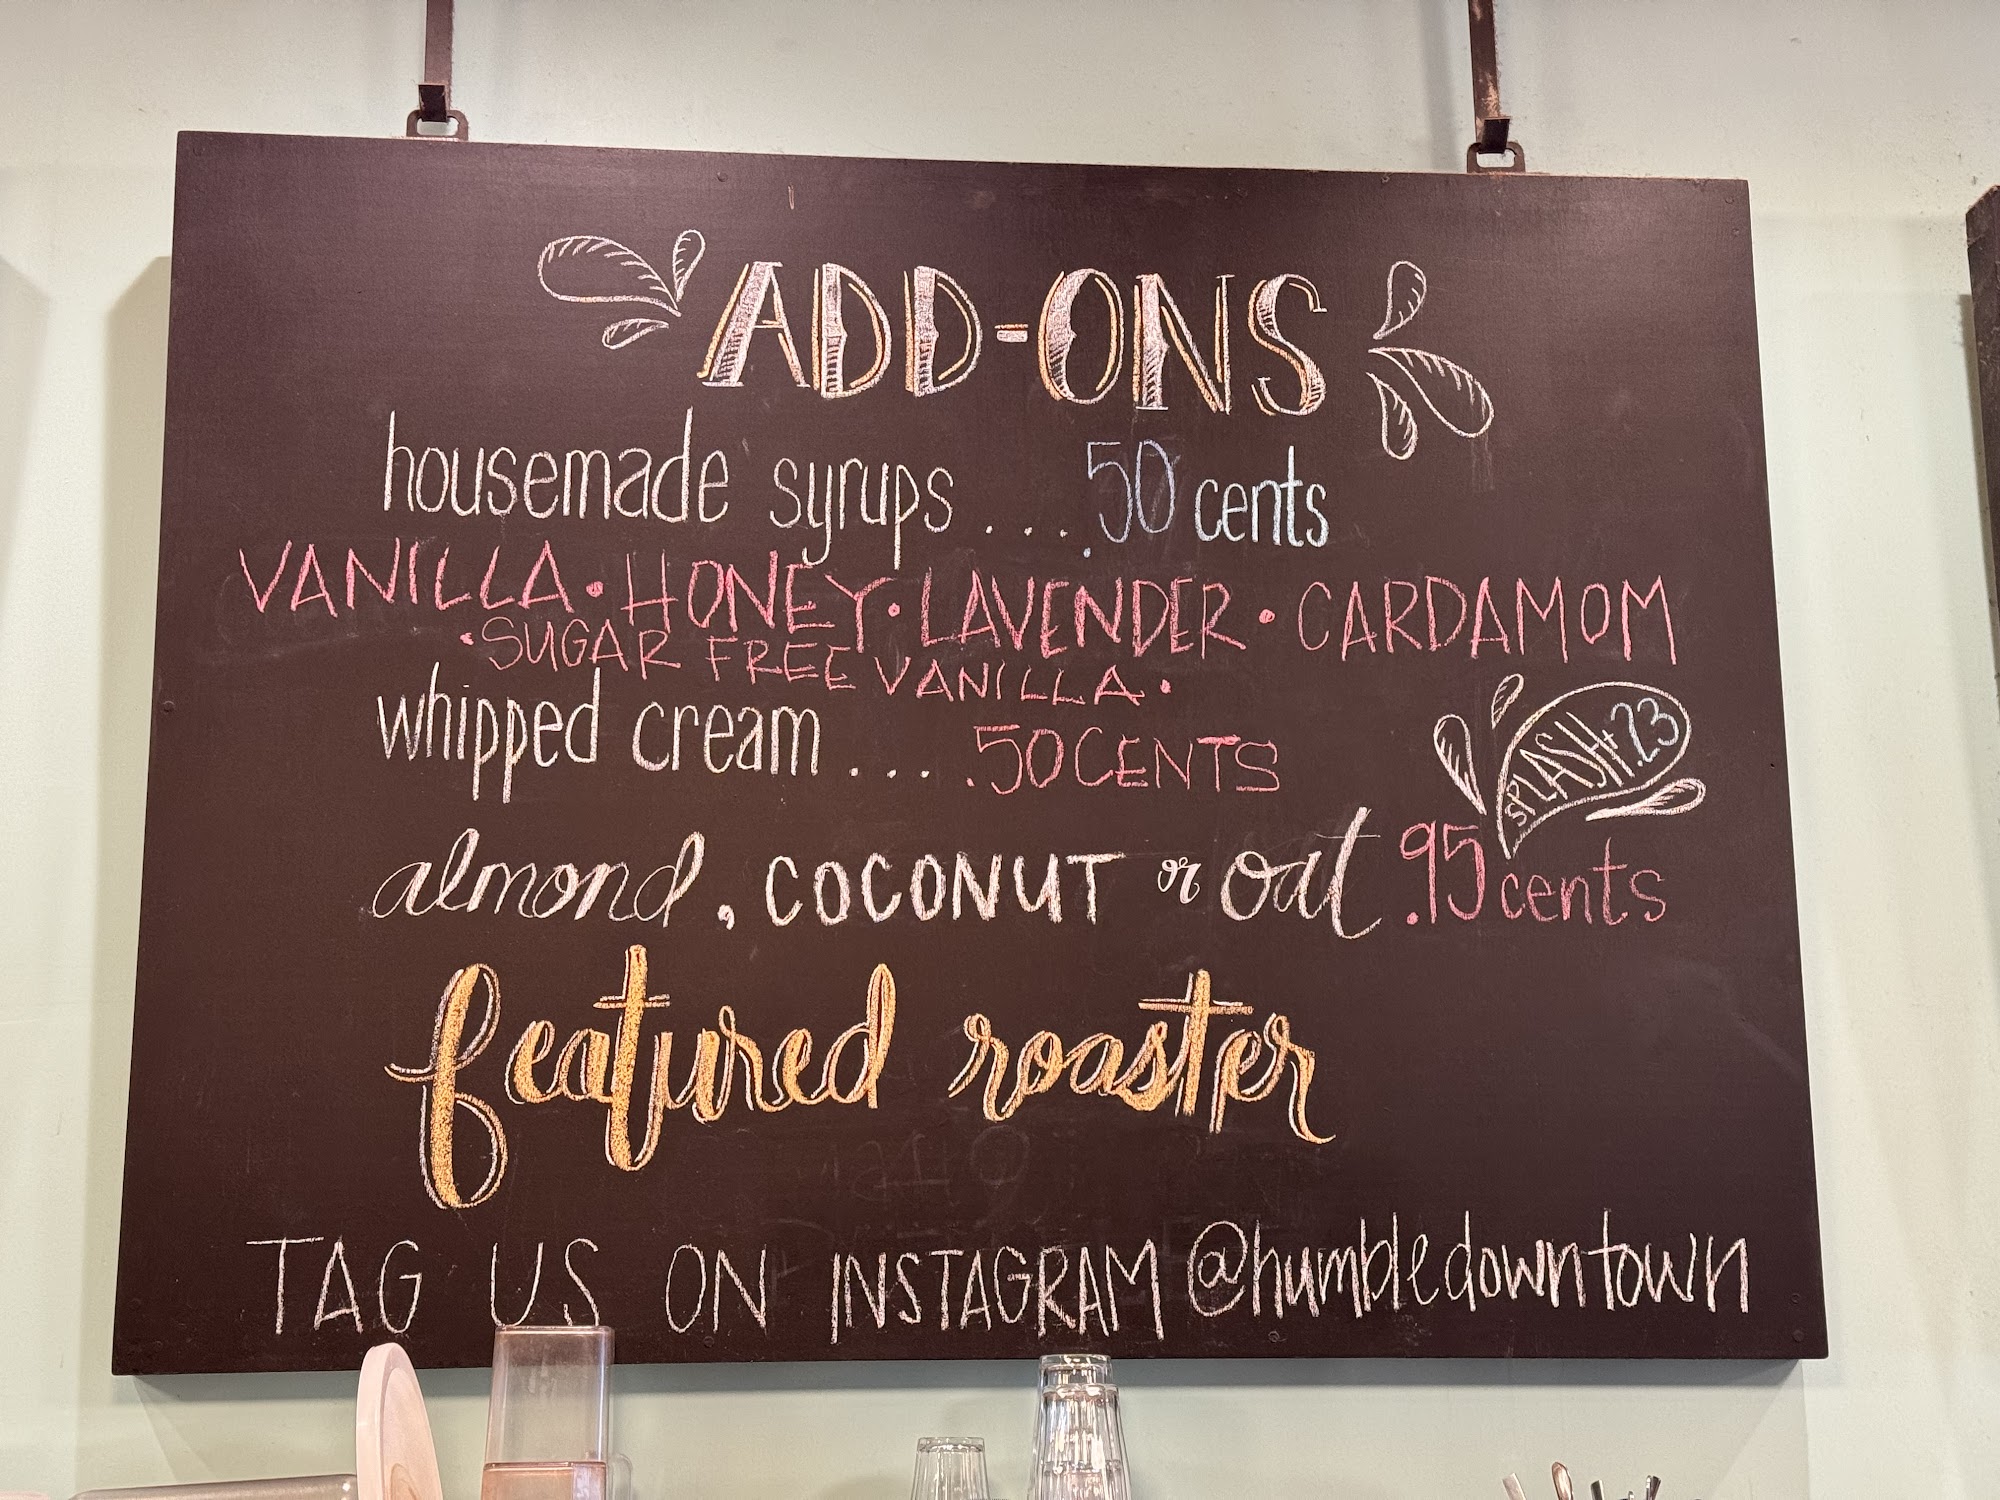 ADD-ONS
housemade syrups .... .50 cents
VANILLA · HONEY · LAVENDER · CARDAMOM
· SUGAR FREE VANILLA ·
whipped cream ... .50 CENTS
SPLASH + .23
almond, COCONUT or oat .95 cents
featured roaster
TAG US ON INSTAGRAM @humbledowntown